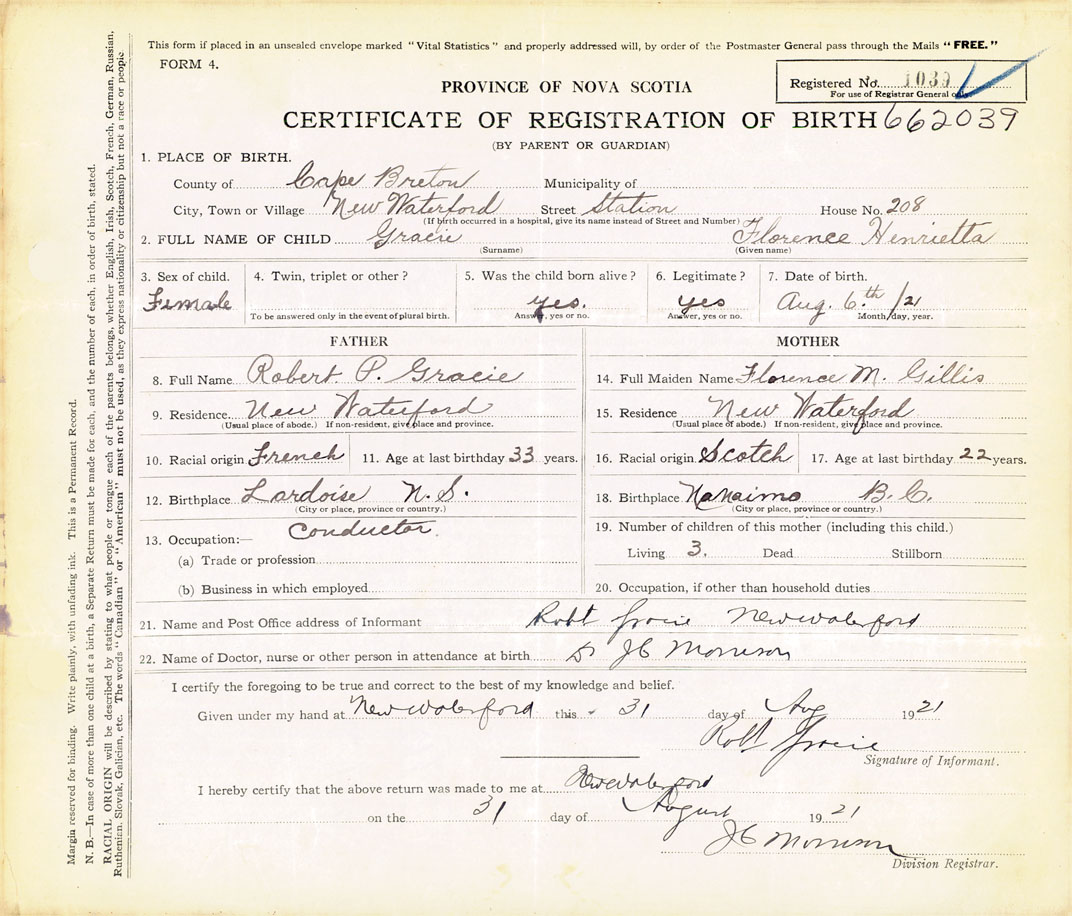 This form if placed in an unsealed envelope marked "Vital Statistics" and properly addressed will, by order of the Postmaster General pass through the Mails "FREE."
FORM 4.
Registered No. 1039
For use of Registrar General only.
PROVINCE OF NOVA SCOTIA
CERTIFICATE OF REGISTRATION OF BIRTH 662039
(BY PARENT OR GUARDIAN)
1. PLACE OF BIRTH.
County of Cape Breton Municipality of
City, Town or Village New Waterford Street Station House No. 208
(If birth occurred in a hospital, give its name instead of Street and Number)
2. FULL NAME OF CHILD Gracie Florence Henrietta
(Surname) (Given name)
3. Sex of child. 4. Twin, triplet or other? 5. Was the child born alive? 6. Legitimate? 7. Date of birth.
Female yes. yes Aug. 6th /21
To be answered only in the event of plural birth. Answer, yes or no. Answer, yes or no. Month, day, year.
FATHER MOTHER
8. Full Name Robert P. Gracie 14. Full Maiden Name Florence M. Gillis
9. Residence New Waterford 15. Residence New Waterford
(Usual place of abode.) If non-resident, give place and province. (Usual place of abode.) If non-resident, give place and province.
10. Racial origin French 11. Age at last birthday 33 years. 16. Racial origin Scotch 17. Age at last birthday 22 years.
12. Birthplace Lardoise N.S. 18. Birthplace Nanaimo B.C.
(City or place, province or country.) (City or place, province or country.)
13. Occupation:— Conductor. 19. Number of children of this mother (including this child.)
(a) Trade or profession Living 3. Dead Stillborn
(b) Business in which employed 20. Occupation, if other than household duties
21. Name and Post Office address of Informant Robt Gracie New Waterford
22. Name of Doctor, nurse or other person in attendance at birth Dr JC Morrison
I certify the foregoing to be true and correct to the best of my knowledge and belief.
Given under my hand at New Waterford this 31 day of Aug 1921
Robt Gracie
Signature of Informant.
I hereby certify that the above return was made to me at New Waterford
on the 31 day of August 1921
JC Morrison
Division Registrar.
Margin reserved for binding. Write plainly, with unfading ink. This is a Permanent Record.
N. B.—In case of more than one child at a birth, a Separate Return must be made for each, and the number of each, in order of birth, stated.
RACIAL ORIGIN will be described by stating to what people or tongue each of the parents belongs, whether English, Irish, Scotch, French, German, Russian,
Ruthenian, Slovak, Galician, etc. The words "Canadian" or "American" must not be used, as they express nationality or citizenship but not a race or people.